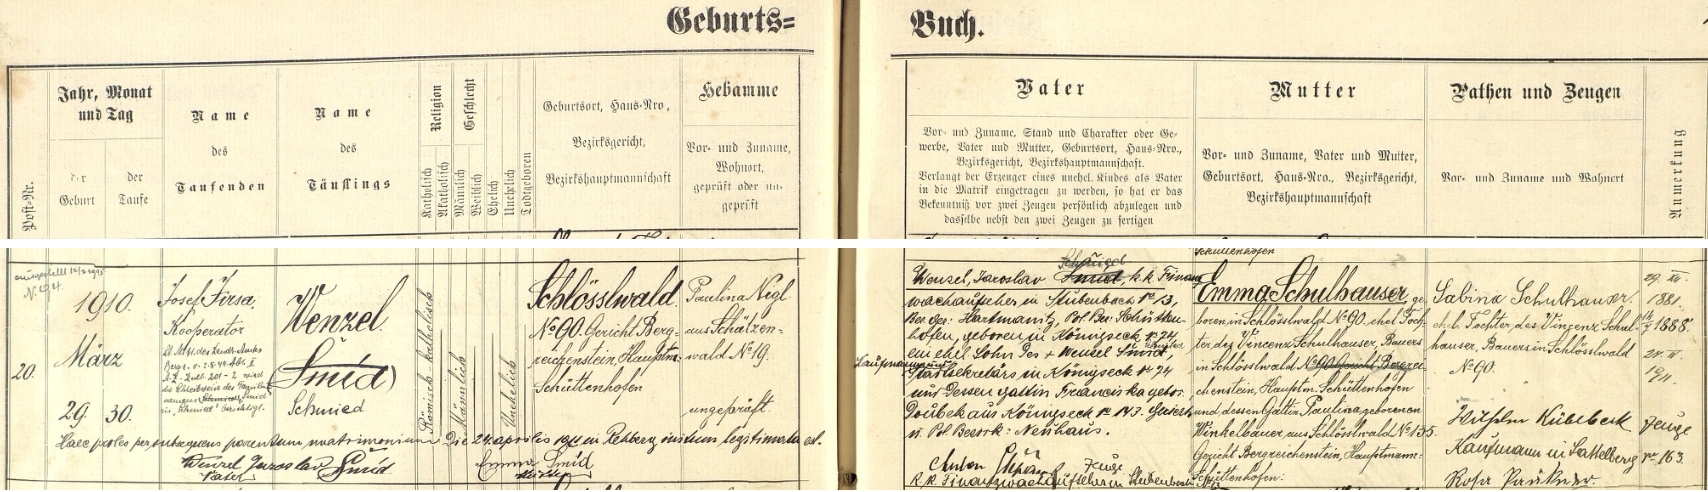 Geburts=
Buch.
Post-Nr.
Jahr, Monat
und Tag
der
Geburt
der
Taufe
Name
des
Taufenden
Name
des
Täuflings
Religion
Katholisch
Akatholisch
Geschlecht
Männlich
Weiblich
Ehelich
Unehelich
Todtgeboren
Geburtsort, Haus-Nro,
Bezirksgericht,
Bezirkshauptmannschaft
Hebamme
Vor- und Zuname,
Wohnort,
geprüft oder un-
geprüft
Vater
Vor- und Zuname, Stand und Charakter oder Ge-
werbe, Vater und Mutter, Geburtsort, Haus-Nro.,
Bezirksgericht, Bezirkshauptmannschaft.
Verlangt der Erzeuger eines unehel. Kindes als Vater
in die Matrik eingetragen zu werden, so hat er das
Bekenntniß vor zwei Zeugen persönlich abzulegen und
dasselbe nebst den zwei Zeugen zu fertigen
Mutter
Vor- und Zuname, Vater und Mutter,
Geburtsort, Haus-Nro., Bezirksgericht,
Bezirkshauptmannschaft
Pathen und Zeugen
Vor- und Zuname und Wohnort
Anmerkung
20.
1910.
März
29. 30.
Josef Jirsa,
Kooperator
Wenzel
(Smíd)
Schmied
Römisch katholisch
Männlich
Unehelich
Schlösslwald
No 90. Gericht Berg-
reichenstein, Hauptm:
Schüttenhofen
Paulina Negl
aus Schätzen-
wald No 19.
ungeprüft
Haec proles per subsequens parentum matrimonium die 24 aprilis 1911 in Rehberg initum legitimata est.
Wenzel Jaroslav Smíd
Vater
Emma Smíd
Mutter
Schüttenhofen
Wenzel, Jaroslav Smíd, k.k. Finanz
wachaufseher in Stubenbach No 13,
Bez. Ger. Hartmanitz, Pol. Bez. Schütten-
hofen, geboren in Königseck No 24
ein ehel. Sohn des + Wenzel Smíd,
sekretärs in Königseck No 24
und dessen Gattin Franciska gebor.
Doubek aus Königseck No 143. Gericht
u. Pol. Bezirk: Neuhaus.
Anton
Zeuge
k.k. Finanzwachaufseher in Stubenbach
Emma Schulhauser, ge-
boren in Schlösslwald No 90. ehel. Toch-
ter des Vincenz Schulhauser, Bauers
in Schlösslwald No 90 Gericht Bergrei-
chenstein, Hauptm. Schüttenhofen
und dessen Gattin Paulina geborenen
Winkelbauer, aus Schlösslwald No 135.
Gericht Bergreichenstein, Hauptmann:
Schüttenhofen.
Sabina Schulhauser.
ehel. Tochter des Vinzenz Schul-
hauser, Bauers in Schlösslwald
No 90.
Kaufmann in Sattelberg
No 163.
Zeuge
29. XII.
1881.
1888.
24. IV.
1911.